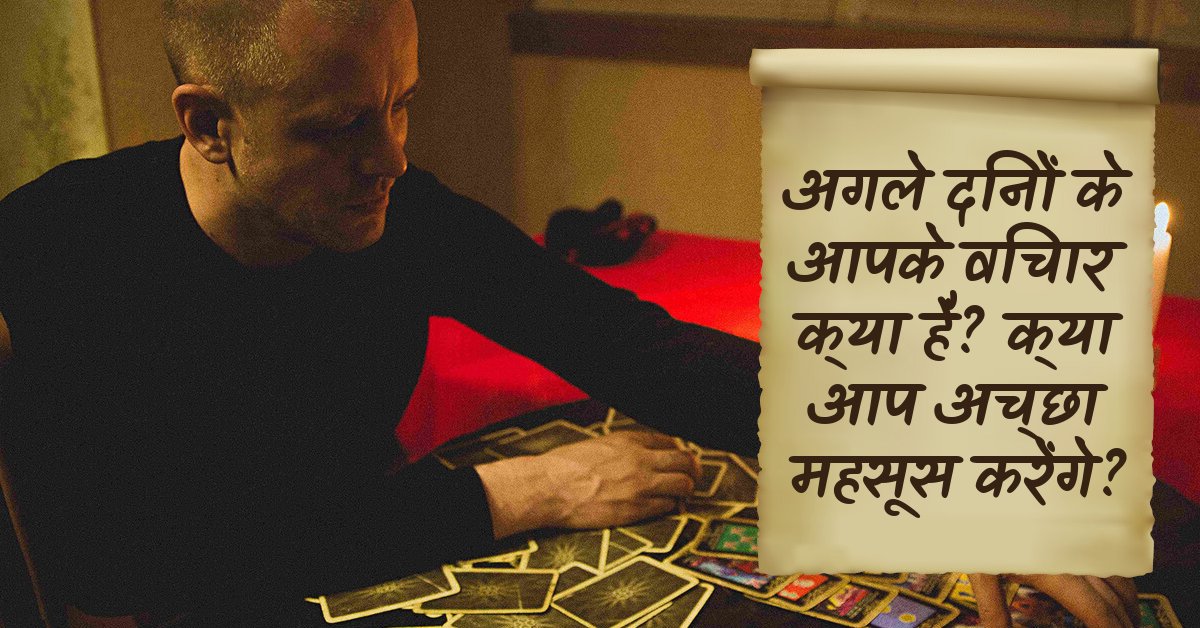 अगले दिनों के
आपके विचार
क्या हैं? क्या
आप अच्छा
महसूस करेंगे?